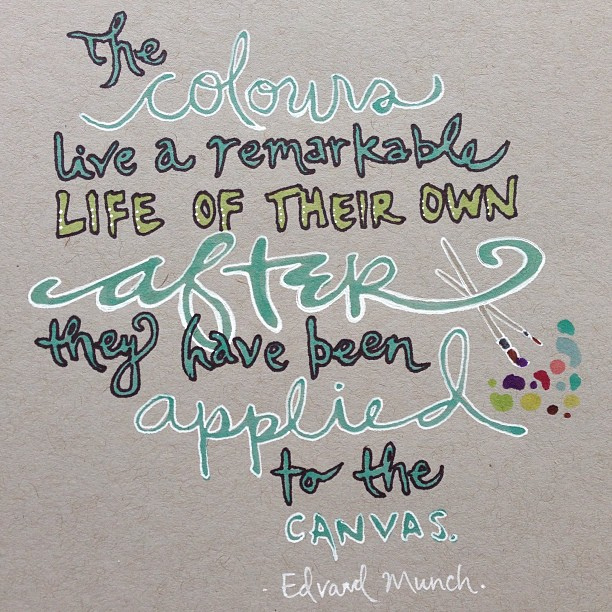 the
colours
live a remarkable
LIFE OF THEIR OWN
after
they have been
applied
to the
CANVAS.
- Edvard Munch.